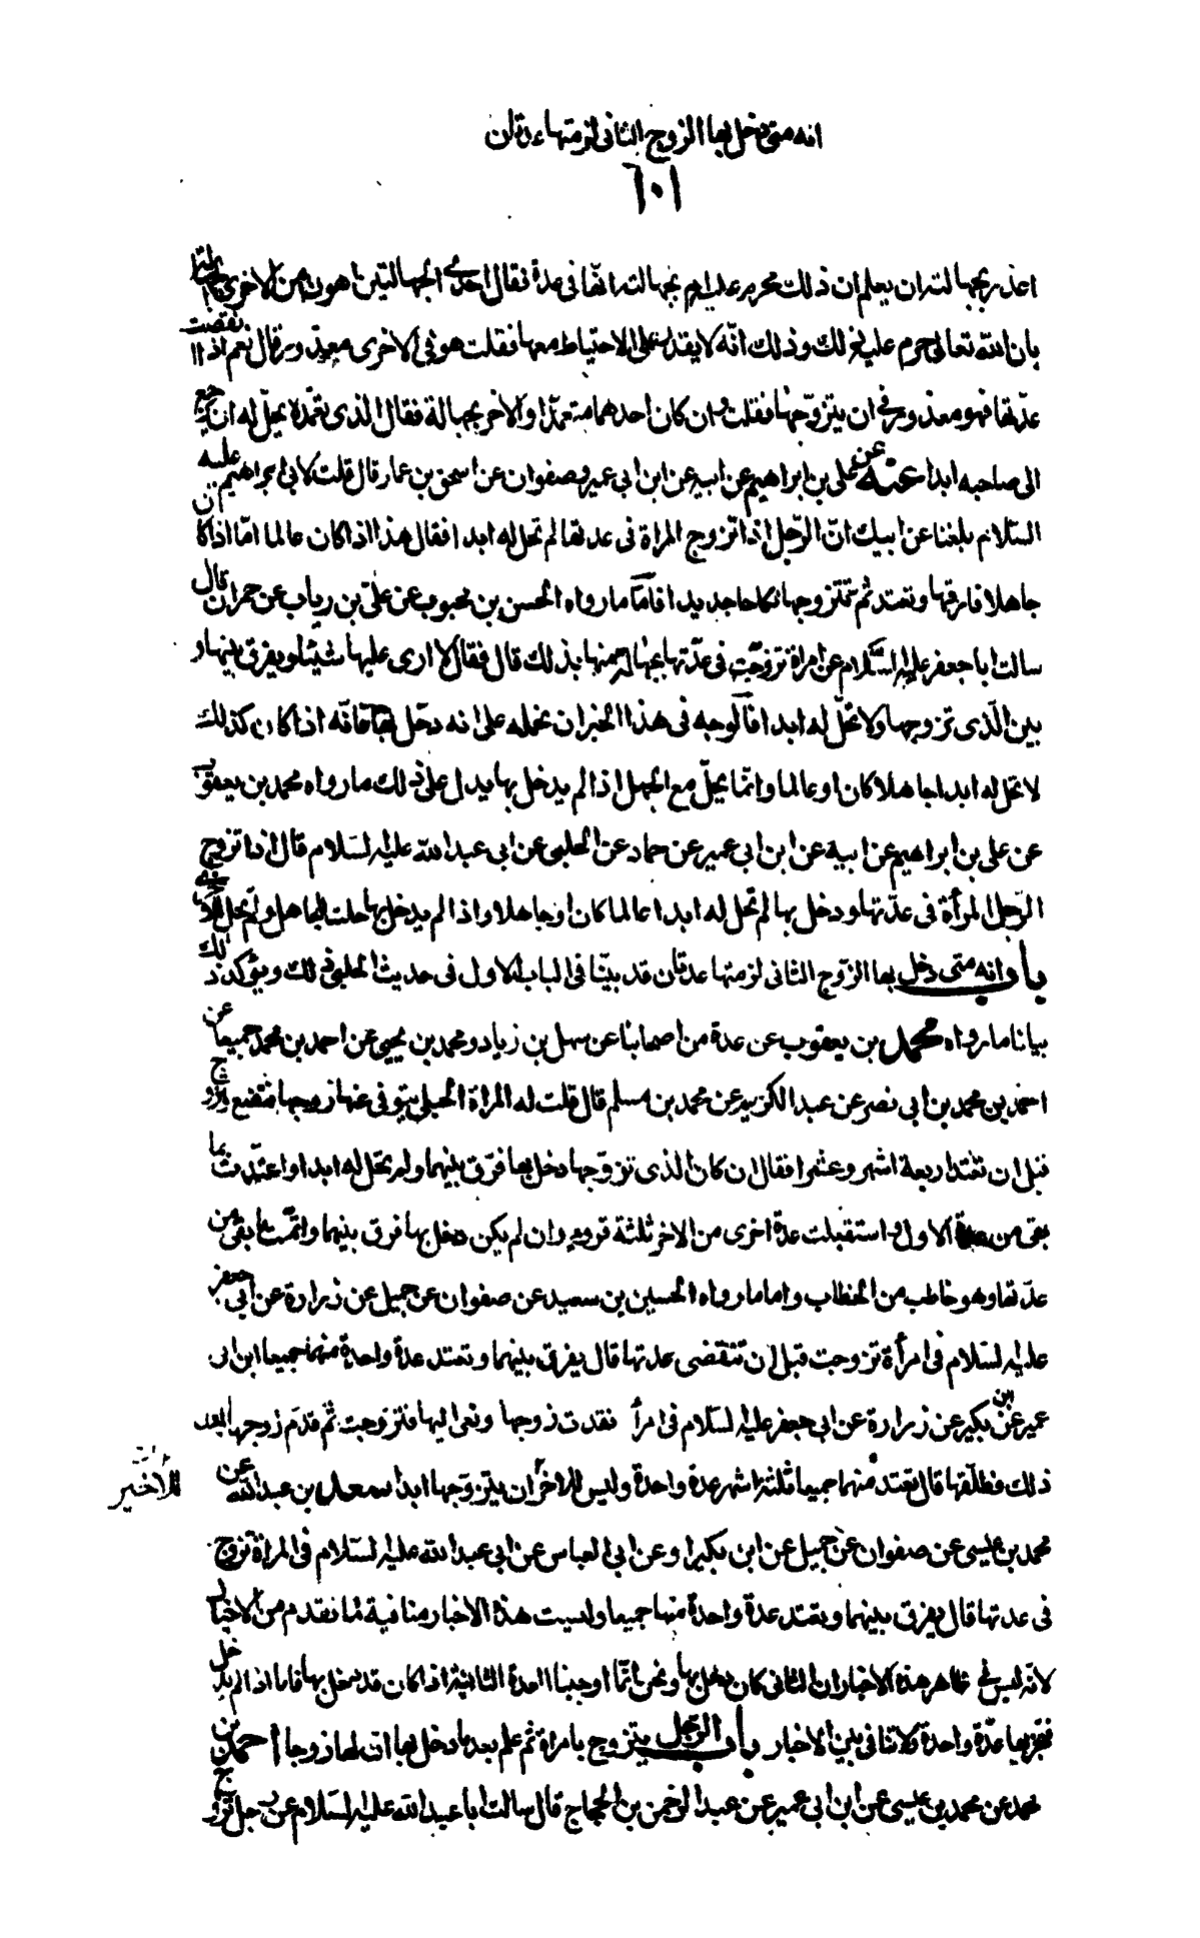 انه متى دخل بها الزوج الثانى لزمتها عدتان
١٠١
اعذر بجهالته ان يعلم ان ذلك محرم عليه ام بجهالته انها فى عدة فقال احدى الجهالتين اهون من الاخرى الجهالة
بان الله تعالى حرم عليه ذلك وذلك انّه لا يقدر على الاحتياط معها فقلت هو فى الاخرى معذور قال نعم اذا انقضت
عدّتها فهو معذور فى ان يتزوّجها فقلت وان كان احدهما متعمّدا والاخر بجهالة فقال الذى تعمّد لا يحلّ له ان يرجع
الى صاحبه ابدا عنه عن على بن ابراهيم عن ابيه عن ابن ابى عمير وصفوان عن اسحق بن عمار قال قلت لابى ابراهيم عليه
السّلام بلغنا عن ابيك انّ الرّجل اذا تزوج المراة فى عدتها لم تحل له ابدا فقال هذا اذا كان عالما امّا اذا كان
جاهلا فارقها وتعتد ثم يتزوجها نكاحا جديدا فامّا ما رواه الحسن بن محبوب عن علىّ بن رياب عن حمران قال
سالت ابا جعفر عليه السّلام عن امراة تزوّجت فى عدّتها بجهالة منها بذلك قال فقال لا ارى عليها شيئا ويفرق بينها و
بين الّذى تزوجها ولا تحلّ له ابدا فالوجه فى هذا الخبر ان نحمله على انه دخل بها فانّه اذا كان كذلك
لا تحل له ابدا جاهلا كان او عالما وانّما يحلّ مع الجهل اذا لم يدخل بها يدل على ذلك ما رواه محمد بن يعقوب
عن على بن ابراهيم عن ابيه عن ابن ابى عمير عن حماد عن الحلبى عن ابى عبد الله عليه السّلام قال اذا تزوج
الرّجل المرأة فى عدّتها ودخل بها لم تحل له ابدا عالما كان او جاهلا واذا لم يدخل بها حلت للجاهل ولم تحل للاخر
باب انه متى دخل بها الزّوج الثانى لزمتها عدتان قد بيّنا فى الباب الاول فى حديث الحلبى ذلك ويؤكد ذلك
بيانا ما رواه محمد بن يعقوب عن عدة من اصحابنا عن سهل بن زياد ومحمد بن يحيى عن احمد بن محمد جميعا عن
احمد بن محمد بن ابى نصر عن عبد الكريم عن محمد بن مسلم قال قلت له المراة الحبلى يتوفى عنها زوجها فتضع وتزوج
قبل ان تعتد اربعة اشهر وعشرا فقال ان كان الذى تزوّجها دخل بها فرّق بينهما ولم تحل له ابدا واعتدّت بما
بقى من عدة الاول واستقبلت عدة اخرى من الاخر ثلثة قروء وان لم يكن دخل بها فرق بينهما واتمّت ما بقى من
عدّتها وهو خاطب من الخطاب واما ما رواه الحسين بن سعيد عن صفوان عن جميل عن زرارة عن ابى جعفر
عليه السّلام فى امرأة تزوجت قبل ان تنقضى عدتها قال يفرق بينهما وتعتد عدة واحدة منهما جميعا ابن ابى
عمير عن ابن بكير عن زرارة عن ابى جعفر عليه السّلام فى امرأ فقدت زوجها ونعى اليها فتزوجت ثمّ قدم زوجها بعد
ذلك فطلّقها قال تعتد منهما جميعا ثلثة اشهر عدة واحدة وليس للاخر ان يتزوّجها ابدا سعد بن عبد الله عن
للاخير
محمد بن عيسى عن صفوان عن جميل عن ابن بكير او عن ابى العباس عن ابى عبد الله عليه السّلام فى المراة تزوج
فى عدتها قال يفرق بينهما وتعتد عدة واحدة منهما جميعا وليست هذه الاخبار منافية لما تقدم من الاخبار
لانّه ليس فى ظاهر هذه الاخبار ان الثانى كان دخل بها ونحن انّما اوجبنا العدة الثانية اذا كان قد دخل بها فاما اذا لم يدخل
فتجزيها عدّة واحدة ولا تنافى بين الاخبار باب الرّجل يتزوج بامراة ثم علم بعد ما دخل بها ان لها زوجا احمد بن
محمد عن محمد بن عيسى عن ابن ابى عمير عن عبد الرحمن بن الحجاج قال سالت ابا عبد الله عليه السّلام عن رجل تزوج